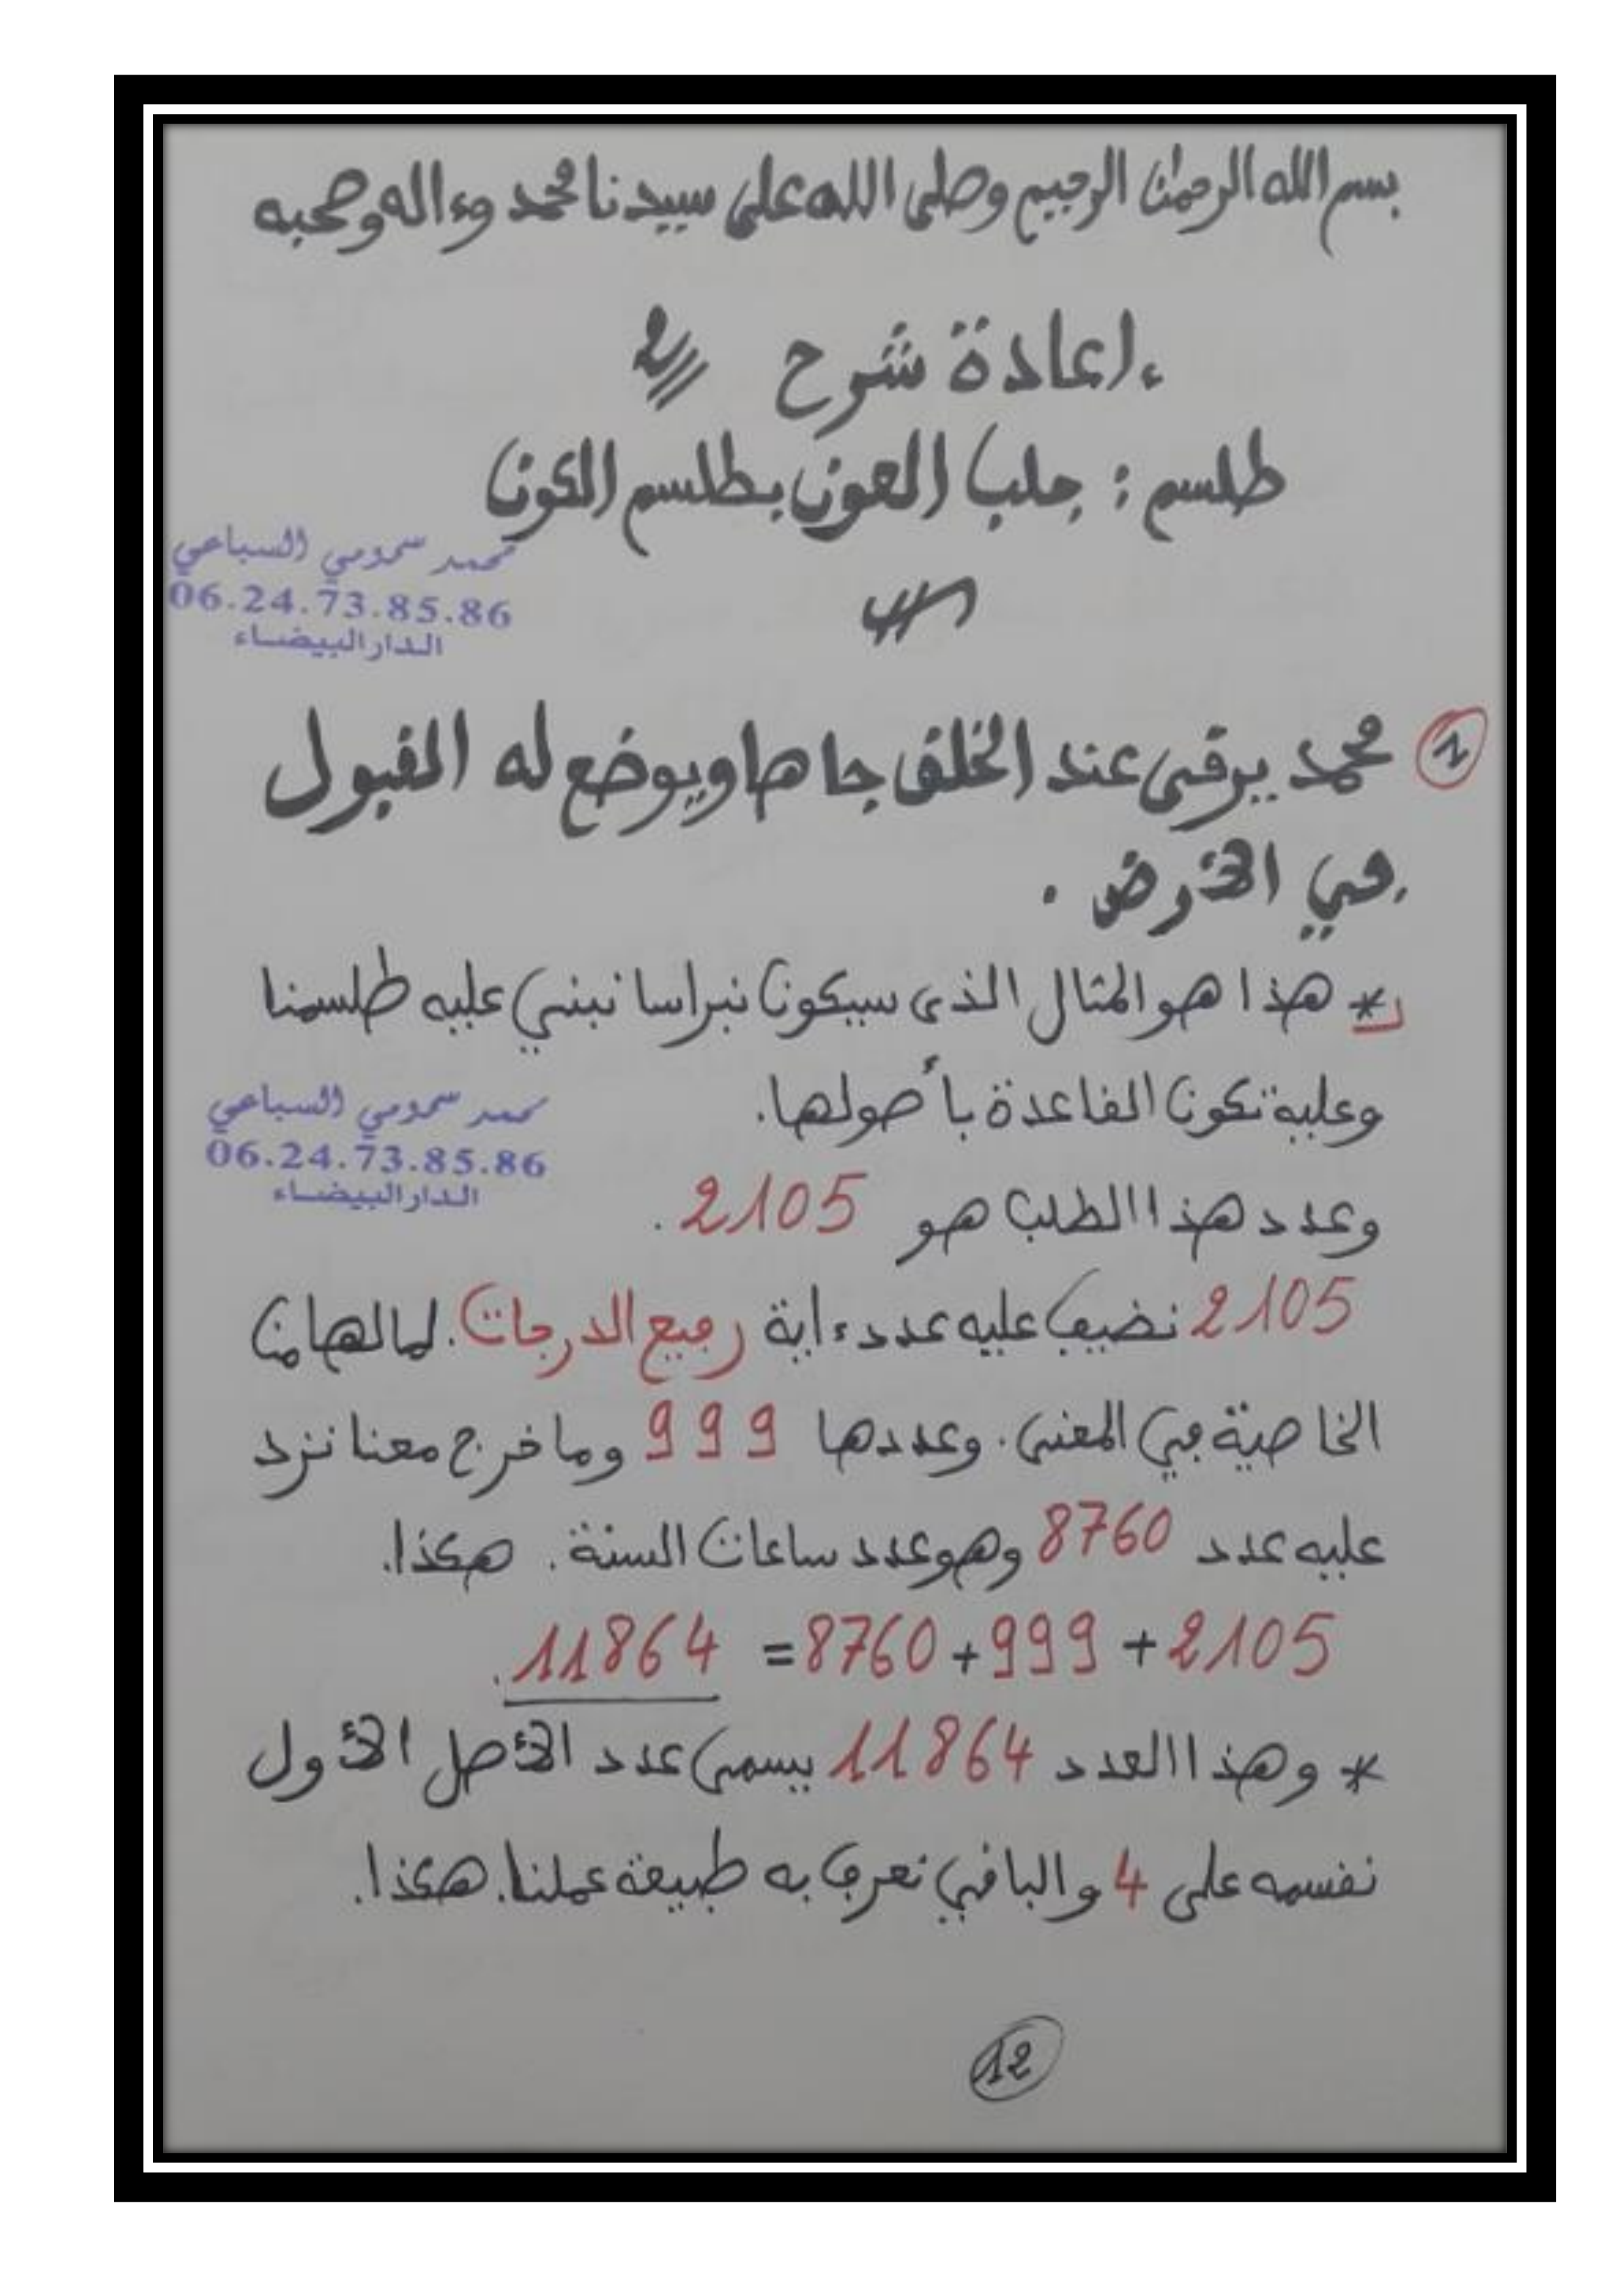 بسم الله الرحمٰن الرحيم وصلى الله على سيدنا محمد وءاله وصحبه
ءاعادة شرح
طلسم : جلب العون بطلسم الكون
محمد سمومي السباعي
06.24.73.85.86
الدار البيضاء
1 محمد يرقى عند الخلق جاها ويوضع له القبول
في الأرض .
* هذا هو المثال الذي سيكون نبراسا نبني عليه طلسمنا
وعليه تكون القاعدة بأصولها.
محمد سمومي السباعي
06.24.73.85.86
الدار البيضاء
وعدد هذا الطلب هو 2105 .
2105 نضيف عليه عدد ءاية رفيع الدرجات. لما لها من
الخاصية في المعنى. وعددها 999 وما خرج معنا نزد
عليه عدد 8760 وهو عدد ساعات السنة. هكذا.
2105 + 999 + 8760 = 11864 .
* وهذا العدد 11864 يسمى عدد الأصل الأول
نقسمه على 4 والباقي نعرف به طبيعة عملنا. هكذا.
12